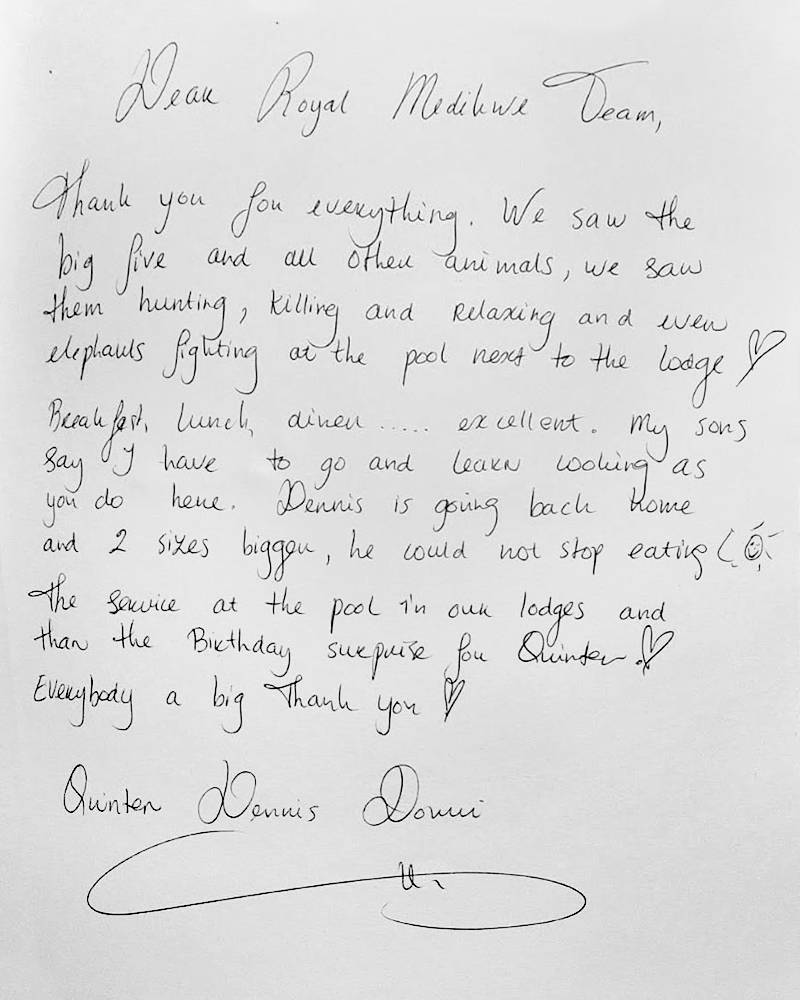 Dear Royal Medikwe Team,
Thank you for everything. We saw the
big five and all other animals, we saw
them hunting, killing and relaxing and even
elephants fighting at the pool next to the lodge ♡
Breakfast, lunch, diner ..... excellent. My sons
say I have to go and learn cooking as
you do here. Dennis is going back home
and 2 sizes bigger, he could not stop eating
The service at the pool in our lodges and
than the Birthday surprise for Quinten. ♡
Everybody a big Thank you ♡
Quinten Dennis